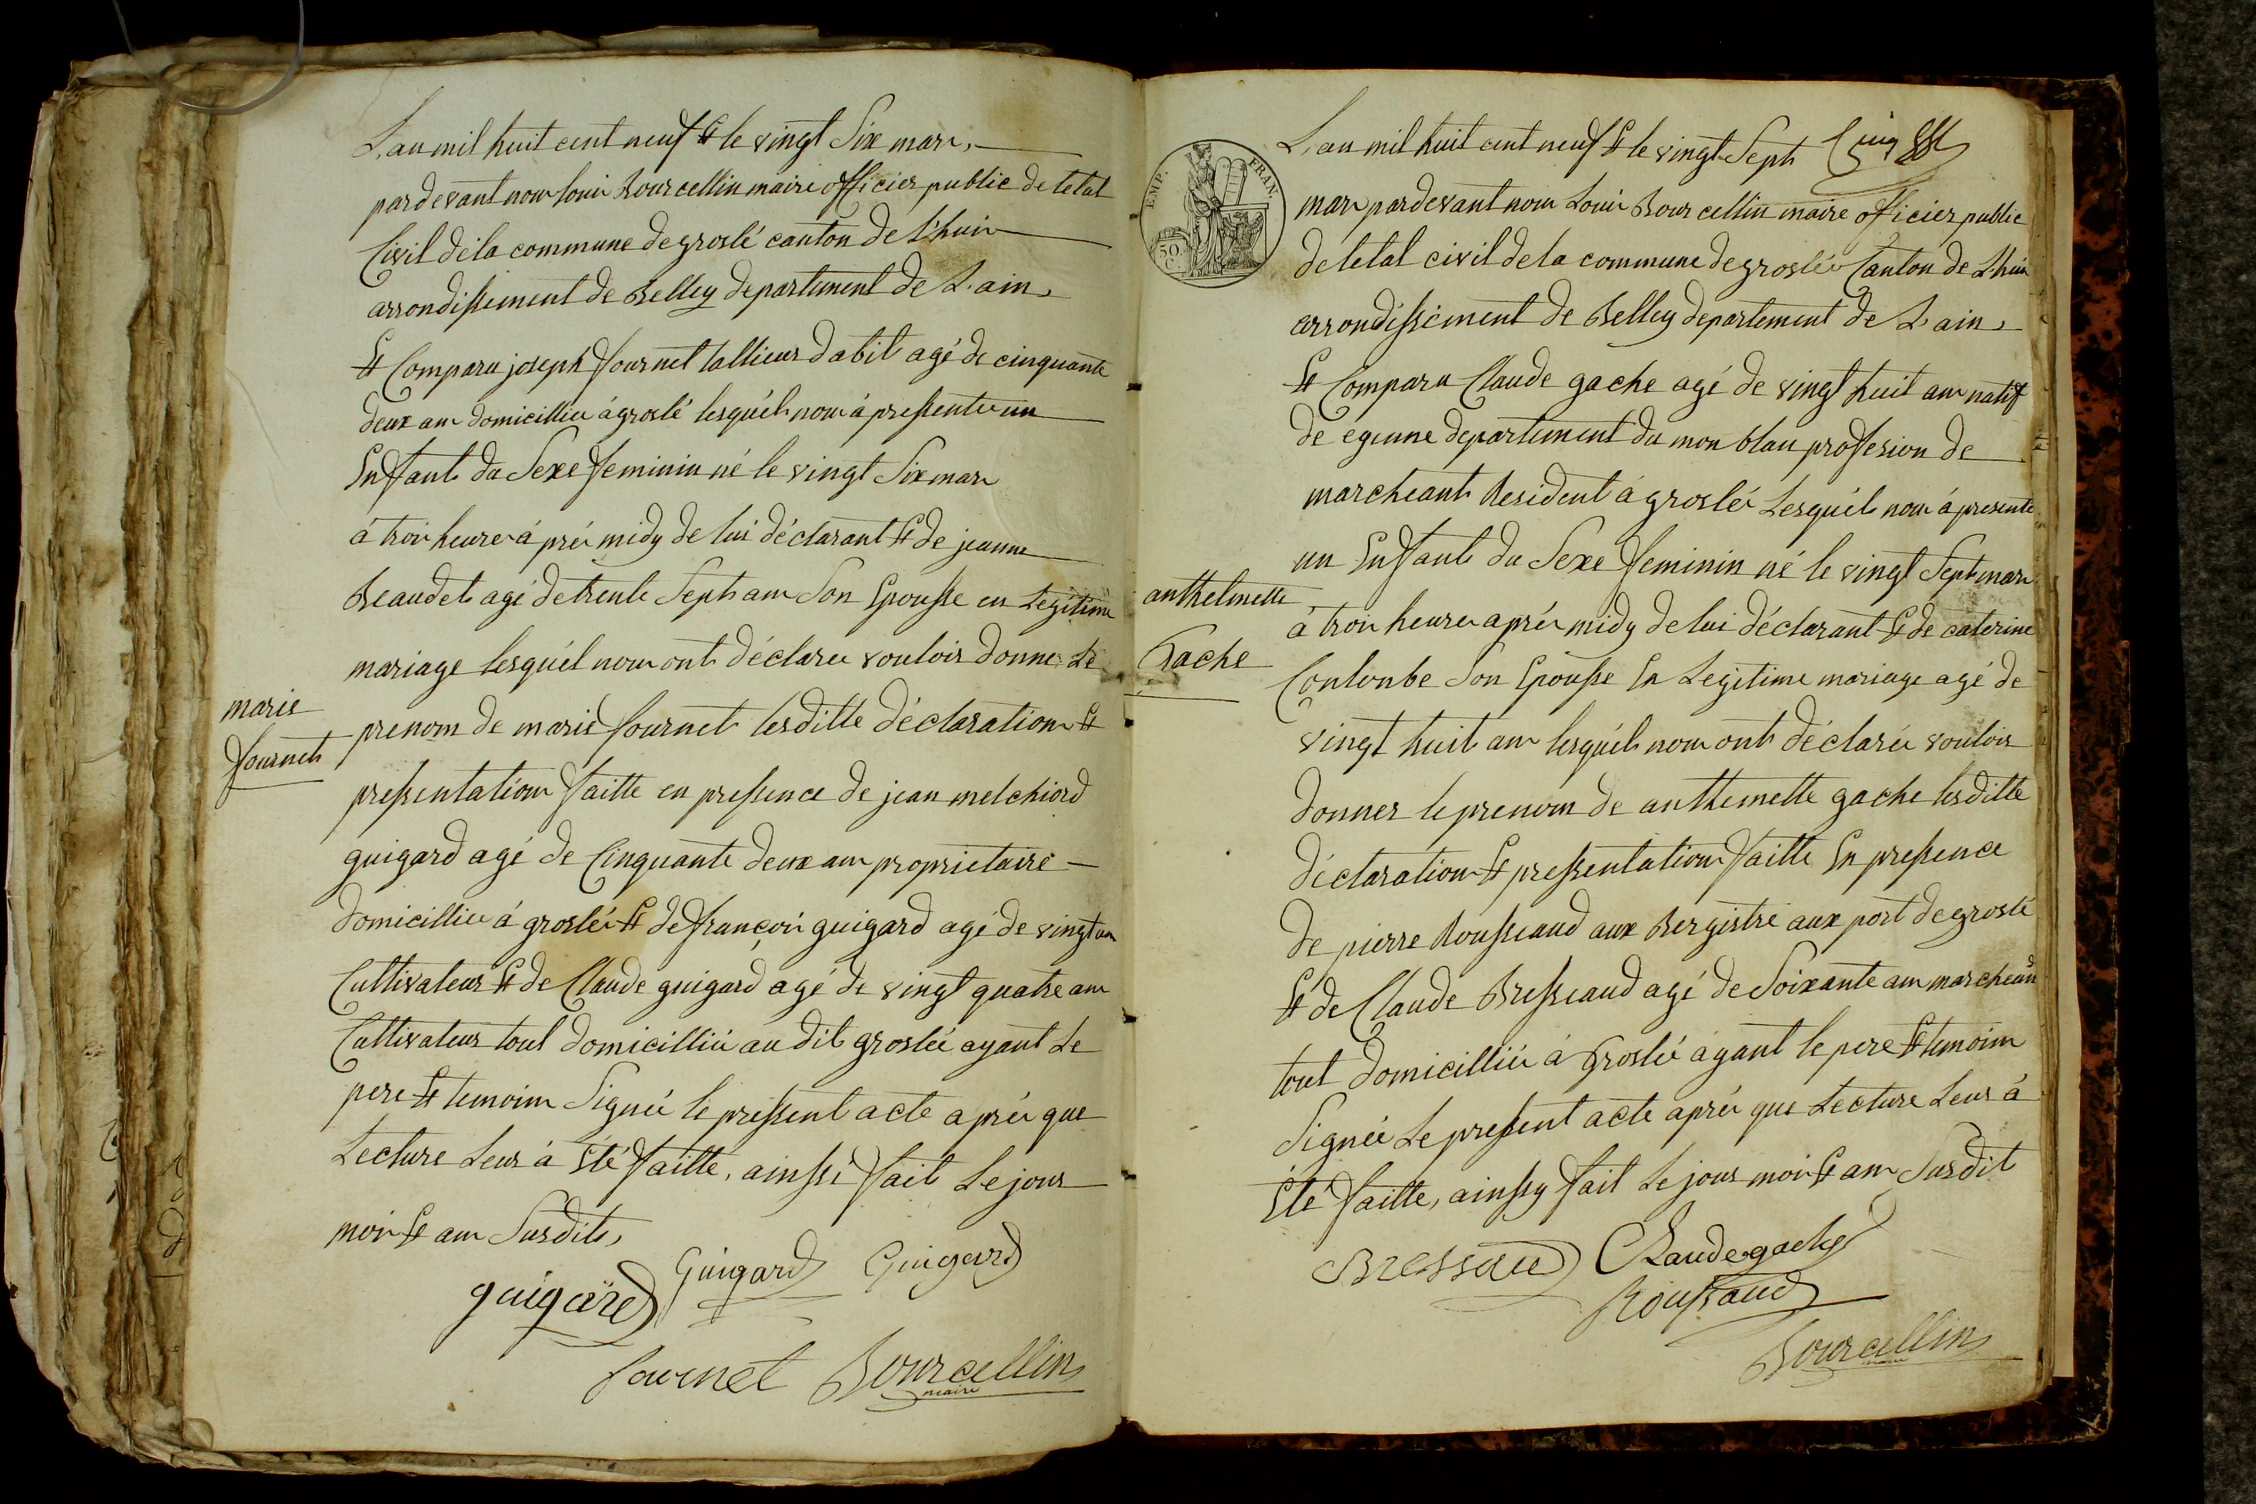 L'an mil huit cent neuf & le vingt Six mars,
pardevant nous louis Bourcellin maire officier public de letat
Civil dela commune de groslé canton de L'huis
arrondissement de Belley departement de L'ain,
& Comparu joseph fournet tallieur dabit agé de cinquante
deux ans domicilliés à groslé lesquéls nous à pressenté un
Enfant du Sexe feminin né le vingt Six mars
à trois heures à prés midy de lui déclarant & de jeanne
Beaudet agé de trente Sept ans Son Epousse en Legitime
mariage lesquél nous ont déclarés vouloir donner Le
marie
fournet
prenom de marie fournet lesditte déclarations &
pressentations faitte en pressence de jean melchiord
guigard agé de Cinquante deux ans proprietaire
domicilliés à groslés & de françois guigard agé de vingt ans
Cultivateur & de Claude guigard agé de vingt quatre ans
Cultivateur tout domicilliés au dit groslée ayant Le
pere & temoins Signés le pressent acte aprés que
Lecture Leur à Eté faitte, ainssi fait Le jour
mois & ans Susdits,
guigard Guigard Guigard
fournet Bourcellin
maire
EMP. FRAN.
50.
C.
L'an mil huit cent neuf & le vingt Sept
Cinq
mars pardevant nous Louis Bourcellin maire officier public
de letat civil dela commune de groslée Canton de Lhuis
arrondissement de Belley departement de L'ain,
& Comparu Claude gache agé de vingt huit ans natif
de departement du mon blan profesion de
marcheant Resident à groslés Lesquéls nous à presenté
un Enfant du Sexe feminin né le vingt Sept mars
anthelmette
Gache
à trois heures aprés midy de lui déclarant & de caterine
Coulonbe Son Epousse En Legitime mariage agé de
vingt huit ans lesquéls nous ont déclarés vouloir
donner le prenom de anthemette gache lesditte
déclarations & pressentations faitte En pressence
de pierre Rousseaud aux Bergistre aux port de groslé
& de Claude Bresseaud agé de Soixante ans marcheand
tout domicilliés à Groslés àyant le pere & temoins
Signée Le pressent acte aprés que Lecture Leur à
Eté faitte, ainssy fait Le jour mois & ans Susdit
Bressaud Claude gache
Roussaud
Bourcellin
maire